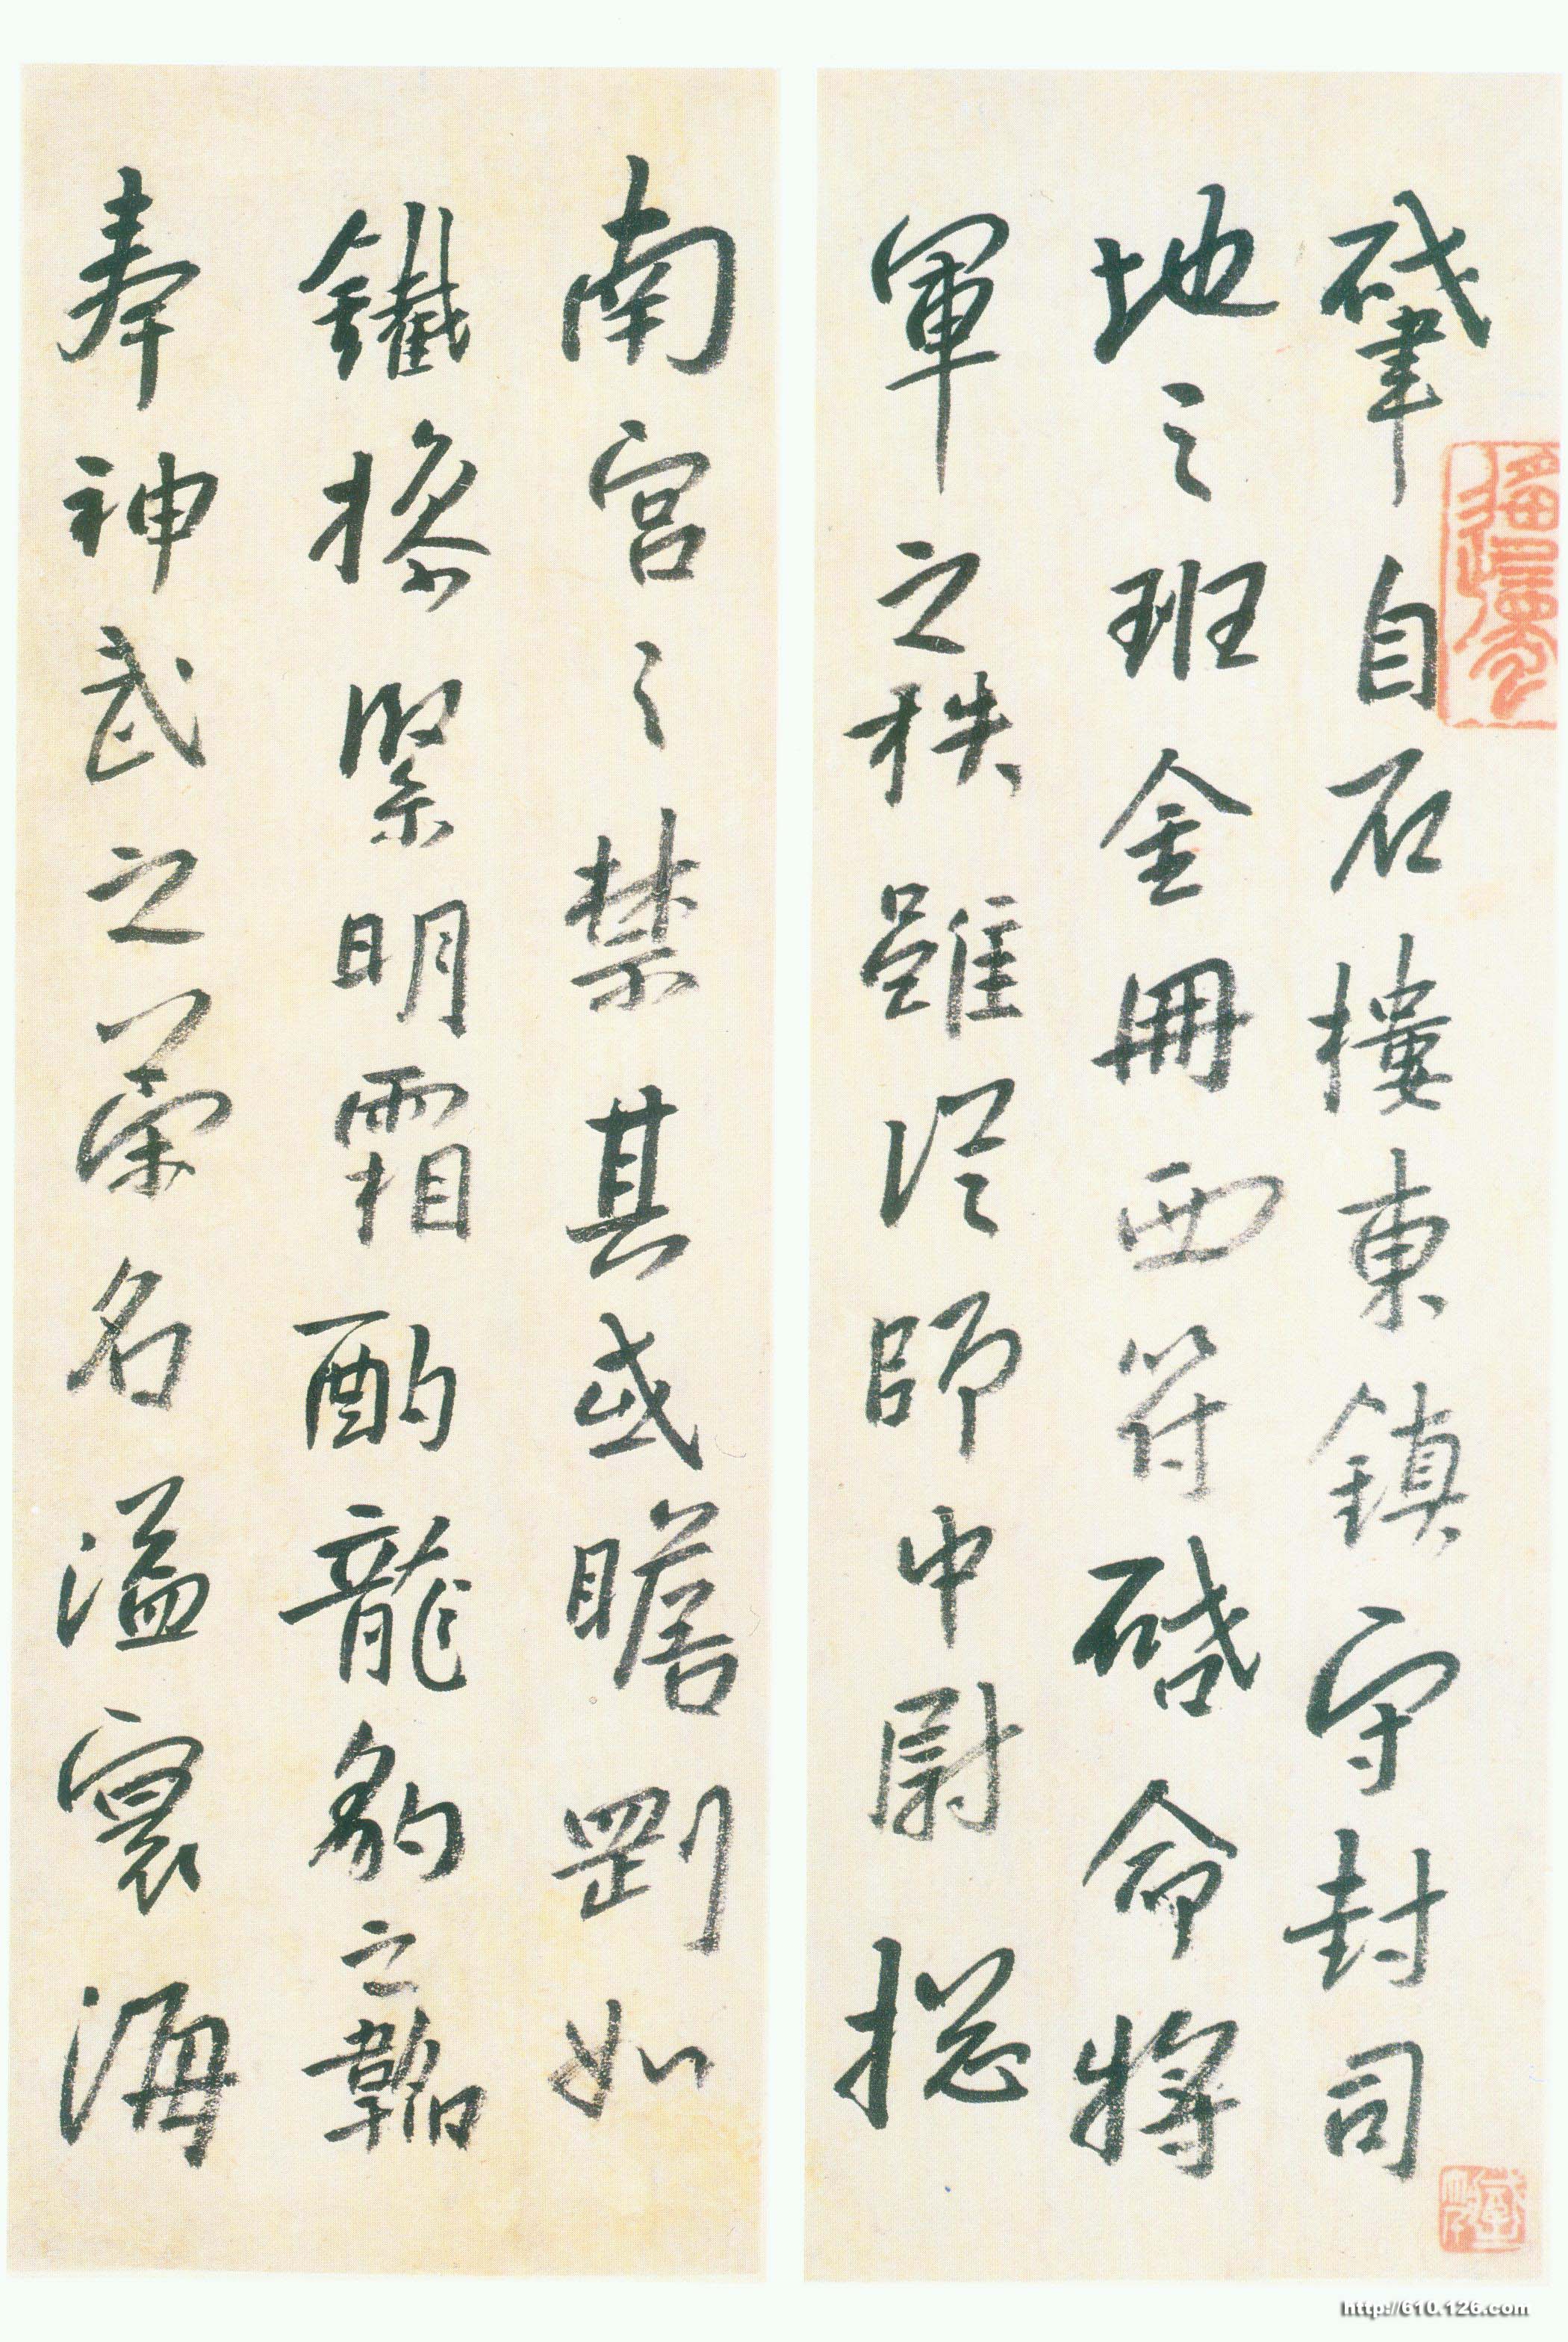 肇自石樓東鎮守封司
地之班金冊西符啓命將
軍之秩雖從師中尉總
南宮之禁其或瞻劉如
鐵操緊明霜酌龍豹之韜
奉神武之榮名溢寰海
http://610.126.com